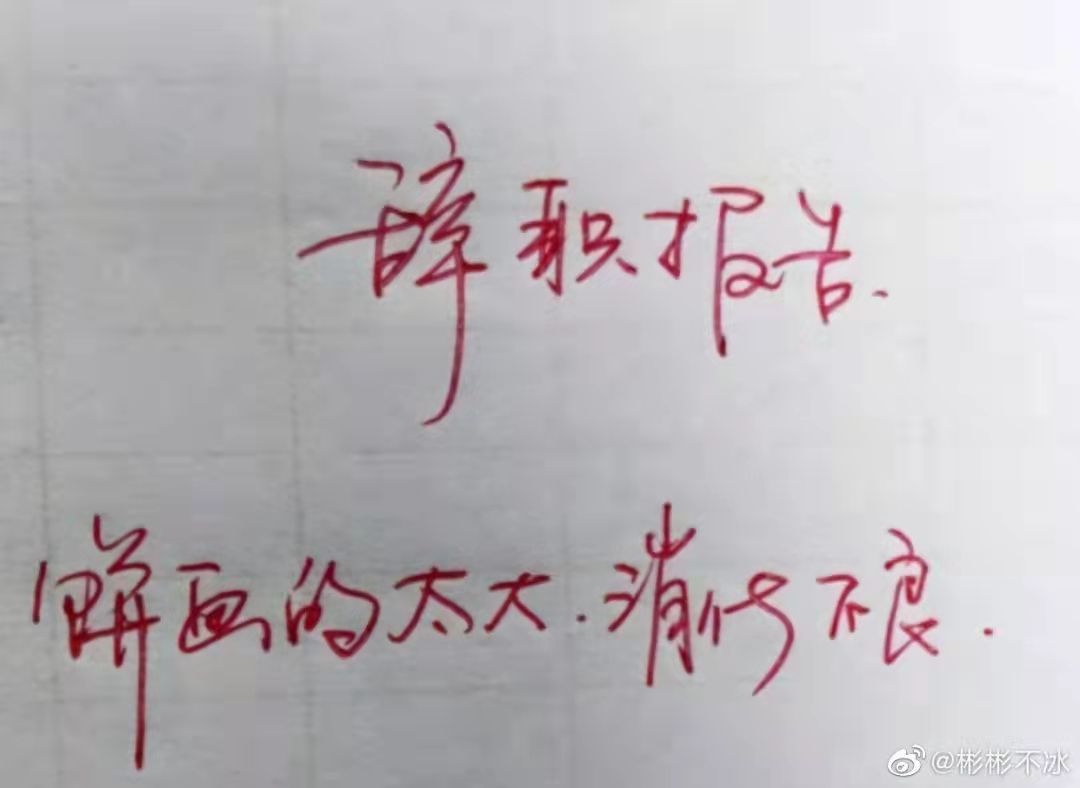 辞职报告.
饼画的太大.消化不良.
@彬彬不冰